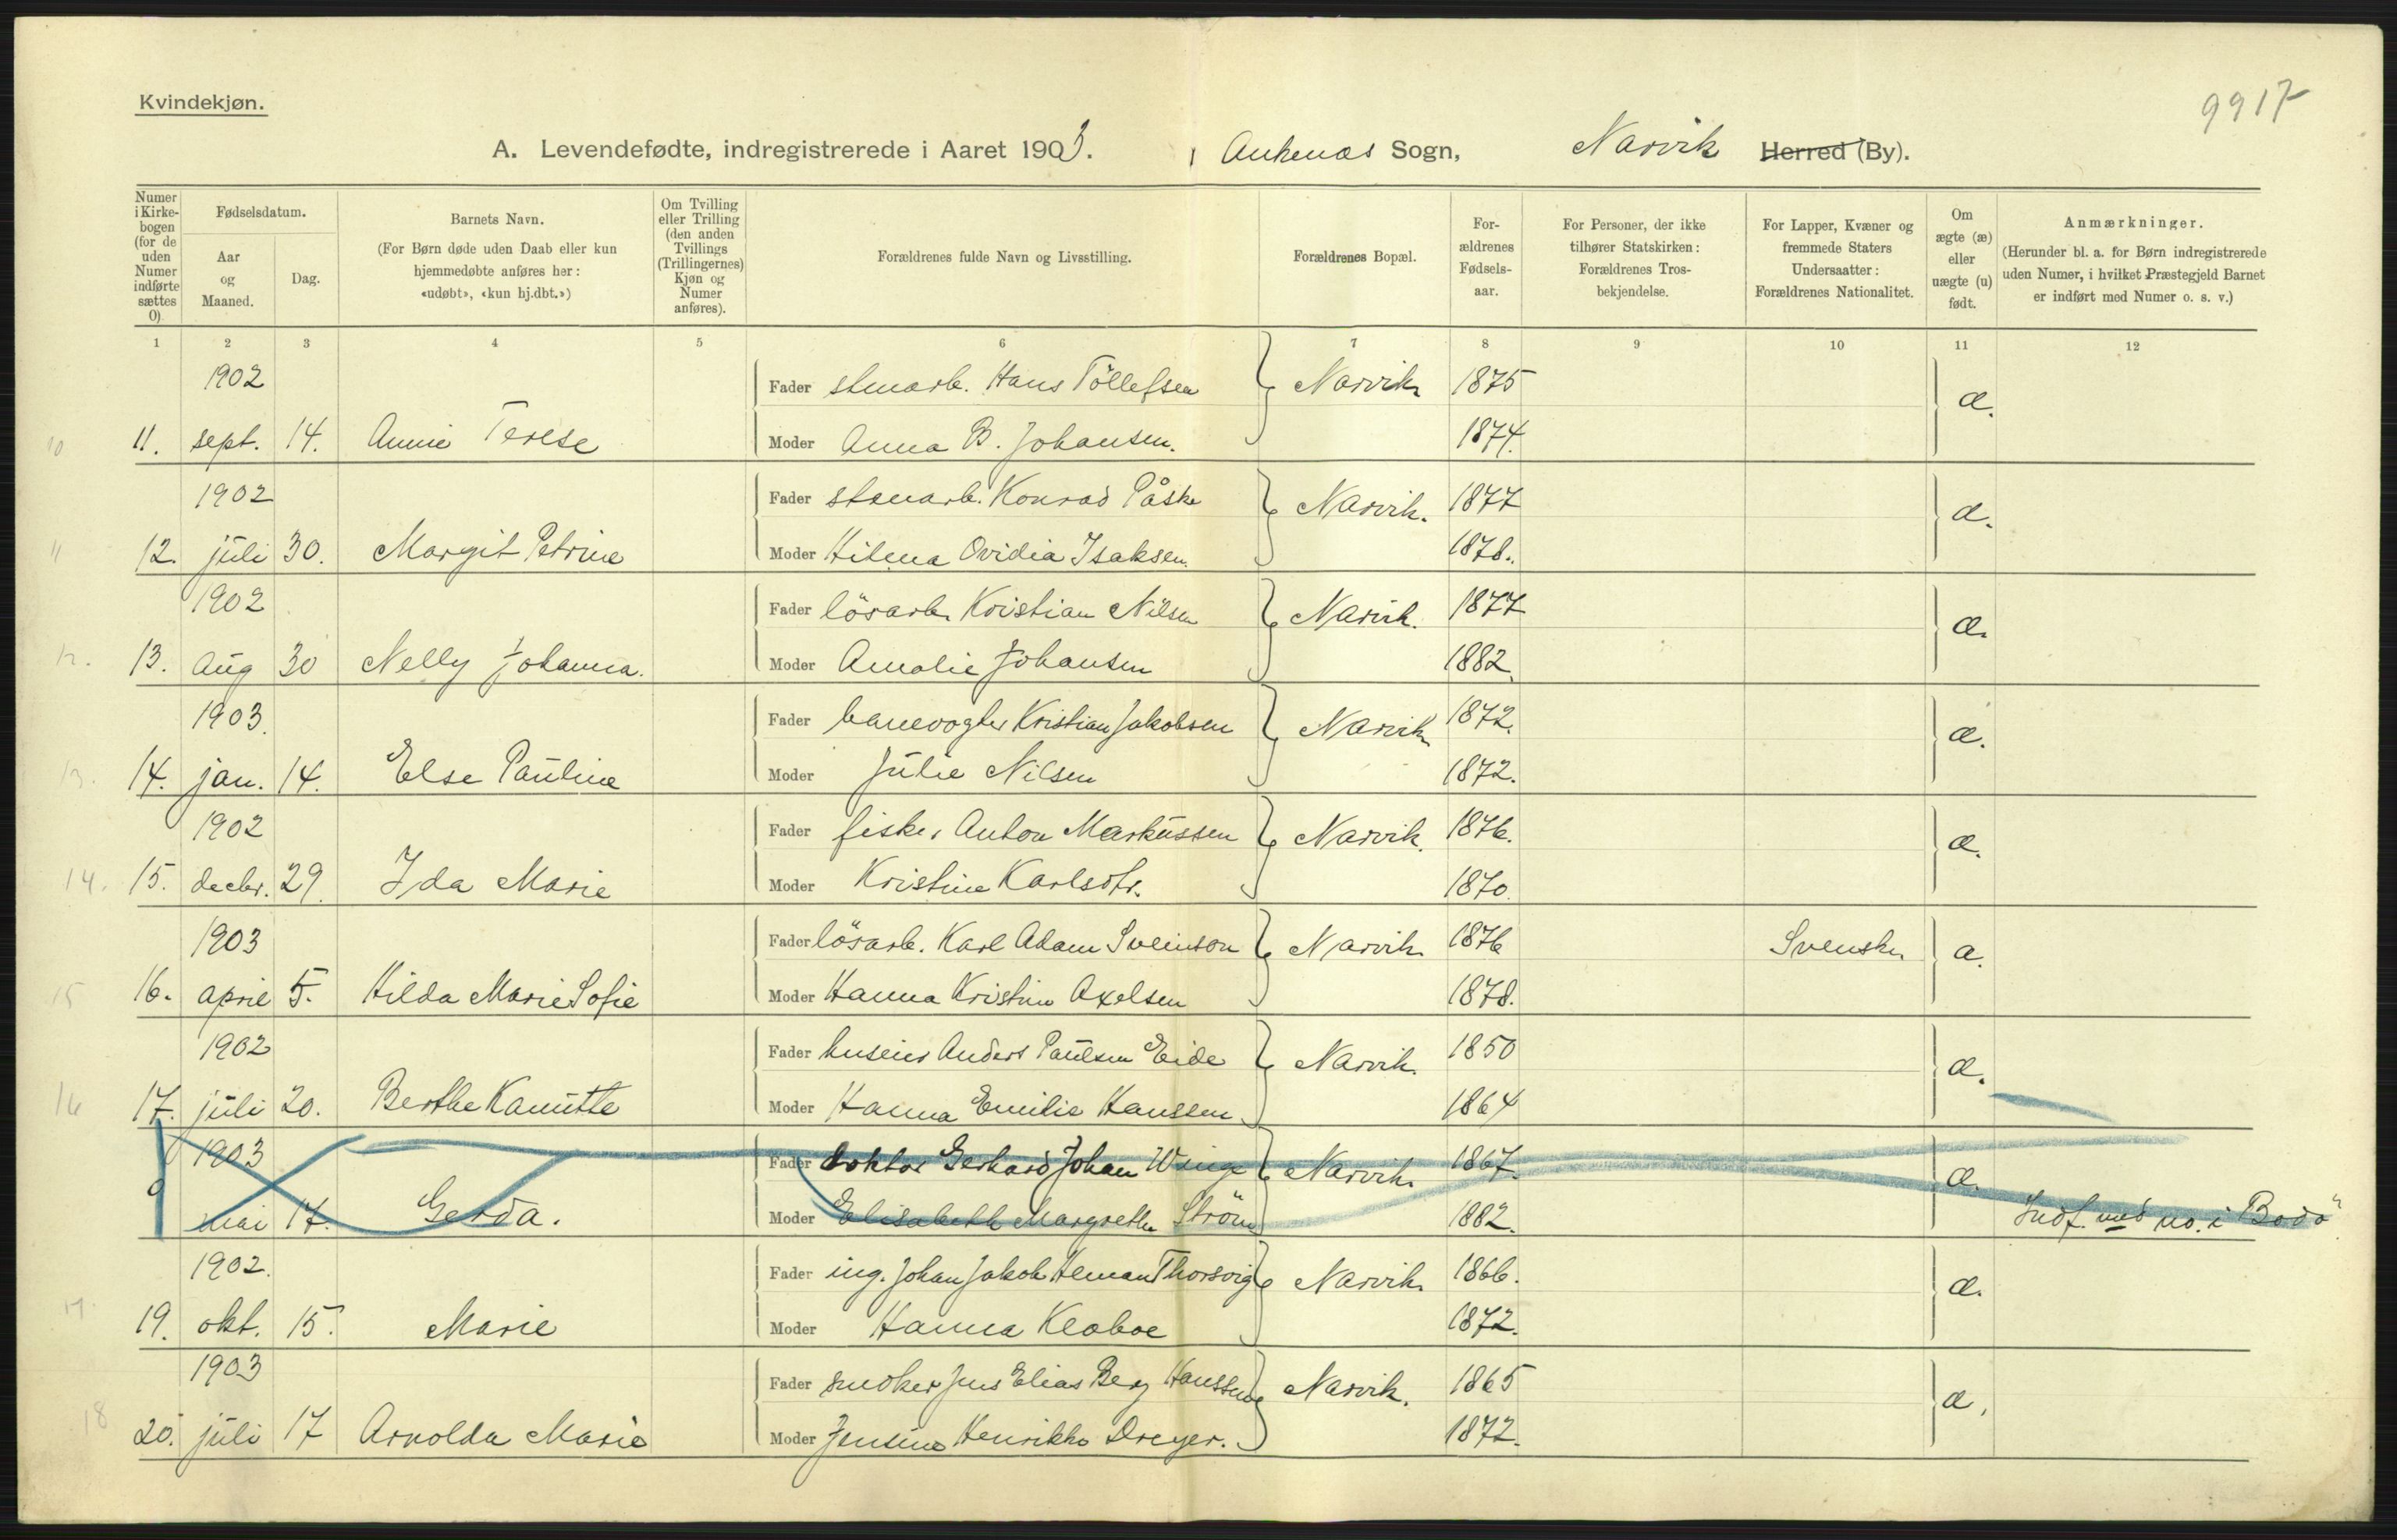 Kvindekjøn.
9917
A. Levendefødte, indregistrerede i Aaret 1903. i Ankenæs Sogn, Narvik Herred (By).
Numer i Kirkebogen (for de uden Numer indførte sættes 0)
Fødselsdatum.
Aar og Maaned.
Dag.
Barnets Navn.
(For Børn døde uden Daab eller kun hjemmedøbte anføres her: «udøbt», «kun hj.dbt.»)
Om Tvilling eller Trilling (den anden Tvillings (Trillingernes) Kjøn og Numer anføres).
Forældrenes fulde Navn og Livsstilling.
Forældrenes Bopæl.
Forældrenes Fødselsaar.
For Personer, der ikke tilhører Statskirken: Forældrenes Trosbekjendelse.
For Lapper, Kvæner og fremmede Staters Undersaatter: Forældrenes Nationalitet.
Om ægte (æ) eller uægte (u) født.
Anmærkninger.
(Herunder bl. a. for Børn indregistrerede uden Numer, i hvilket Præstegjeld Barnet er indført med Numer o. s. v.)
1 2 3 4 5 6 7 8 9 10 11 12
1902 Fader stenarb. Hans Töllefsen Narvik 1875 æ.
10 11. sept. 14. Annie Terese Moder Anna B. Johansen. 1874.
1902 Fader stenarb. Konrad Påske Narvik. 1877 æ.
11 12. juli 30. Margit Petrine Moder Hilma Ovidia Isaksen. 1878.
1902 Fader lösarb. Kristian Nilsen Narvik. 1877 æ.
12. 13. Aug 30 Nelly Johanna. Moder Amalie Johansen 1882.
1903. Fader banevogter Kristian Jakobsen Narvik 1872. æ.
13. 14. jan. 14. Else Pauline Moder Julie Nilsen 1872.
1902 Fader fisker Anton Markussen Narvik. 1876. æ.
14. 15. decbr. 29. Ida Marie Moder Kristine Karlsdtr. 1870.
1903 Fader lösarb. Karl Adam Sveinson Narvik 1876 Svensk æ.
15 16. april 5. Hilda Marie Sofie Moder Hanna Kristine Axelsen 1878.
1902 Fader huseier Anders Paulsen Eide Narvik. 1850 æ.
16 17. juli 20. Berthe Kanutte Moder Hanna Emilie Hanssen 1864
1903 Fader doktor Gerhard Johan Winge Narvik. 1867. æ.
0 mai 17. Gerda. Moder Elisabeth Margrethe Ström 1882. Indf. med no. i Bodö.
1902. Fader ing. Johan Jakob Heman Thorsvig Narvik 1866. æ.
17. 19. okt. 15. Marie Moder Hanna Kloboe 1872.
1903 Fader snedker Jens Elias Berg Hanssen Narvik. 1865 æ.
18 20. juli 17 Arnolda Marie Moder Jensine Henrikke Dreyer. 1872.